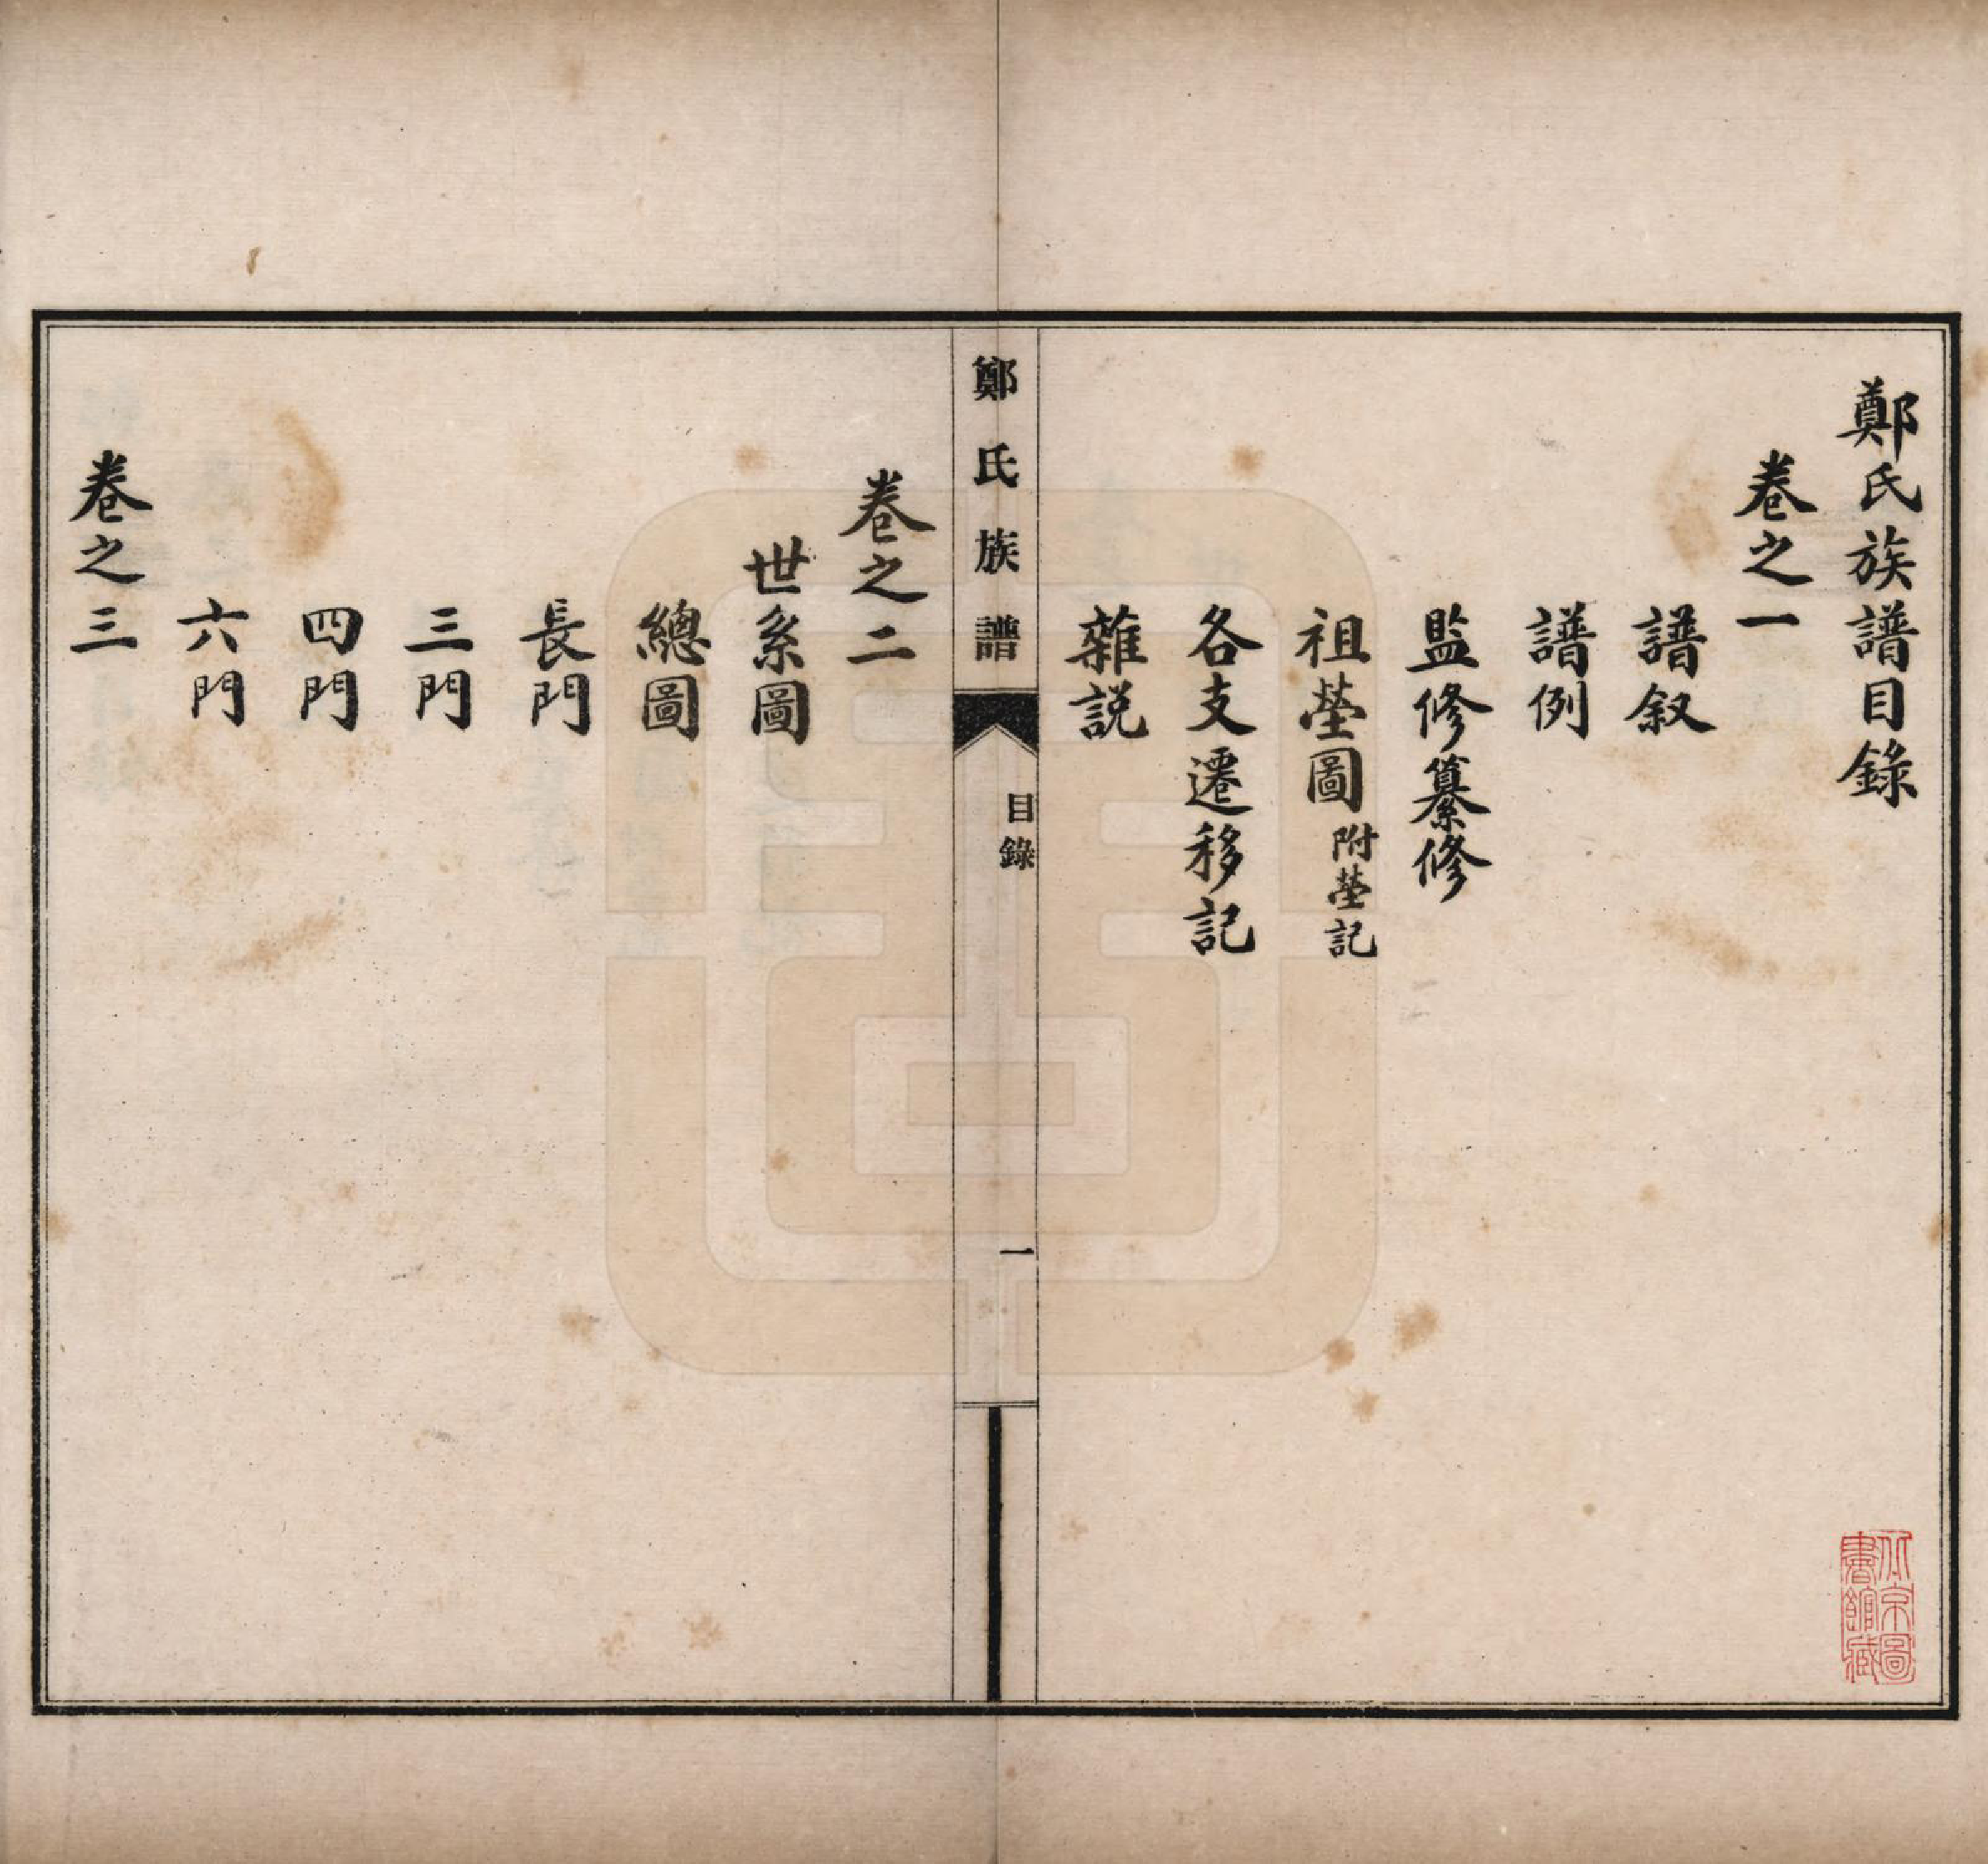 鄭氏族譜目錄
卷之一
譜敘
譜例
監修纂修
祖塋圖附塋記
各支遷移記
雜説
鄭氏族譜
目錄
一
卷之二
世系圖
總圖
長門
三門
四門
六門
卷之三
北京圖
書館藏